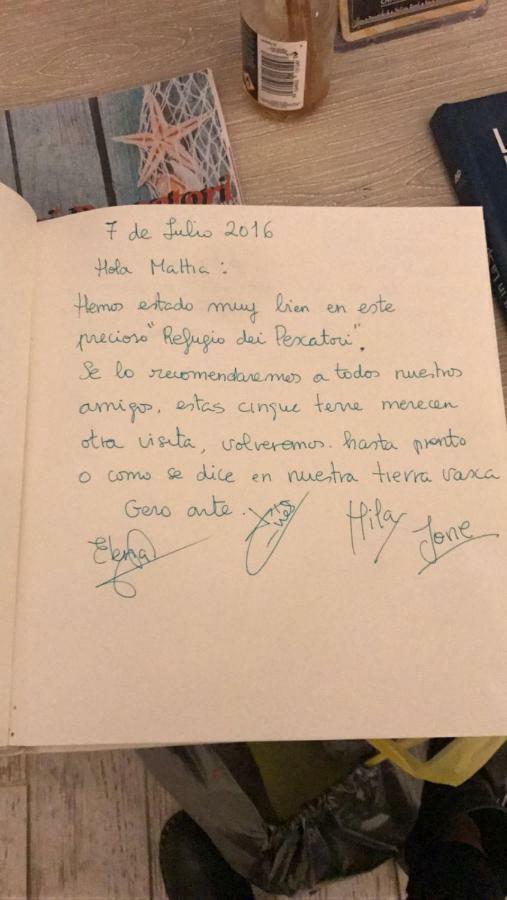 7 de Julio 2016
Hola Mattia:
Hemos estado muy bien en este
precioso "Refugio dei Pexcatori".
Se lo recomendaremos a todos nuestros
amigos, estas cinque terre merecen
otra visita, volveremos. hasta pronto
o como se dice en nuestra tierra vaxa
Gero arte.
Elena
Hila
Jone